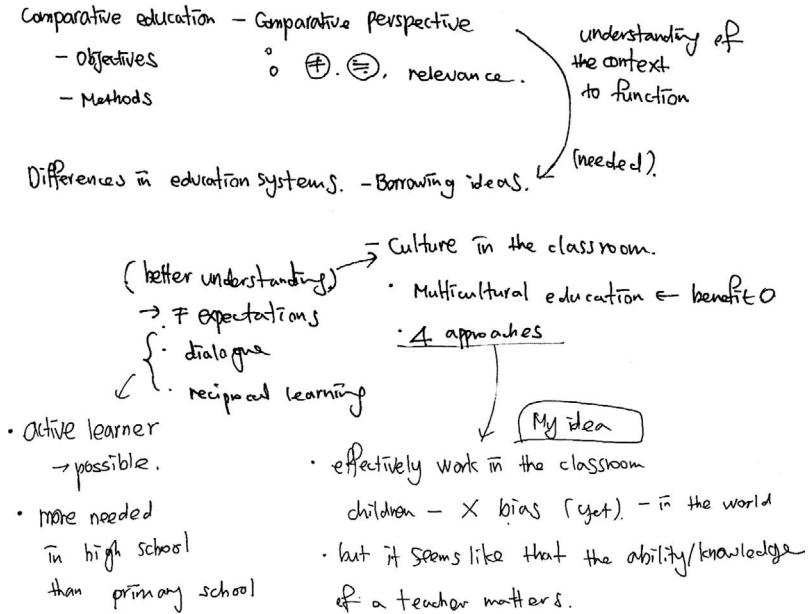 Comparative education – Comparative perspective
– Objectives
: ≠. ≒. relevance.
– Methods
understanding of
the context
to function
(needed).
Differences in education systems. – Borrowing ideas.
– Culture in the classroom.
(better understanding)
→ ≠ expectations
· dialogue
· reciprocal learning
· Multicultural education ← benefit O
· 4 approaches
· active learner
→ possible.
· more needed
in high school
than primary school
My idea
· effectively work in the classroom
children – X bias (yet). – in the world
· but it seems like that the ability/knowledge
of a teacher matters.